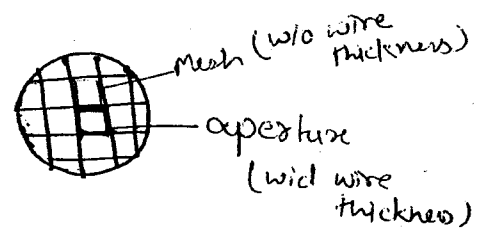 Mesh (w/o wire
thickness)
aperture
(wid wire
thickness)